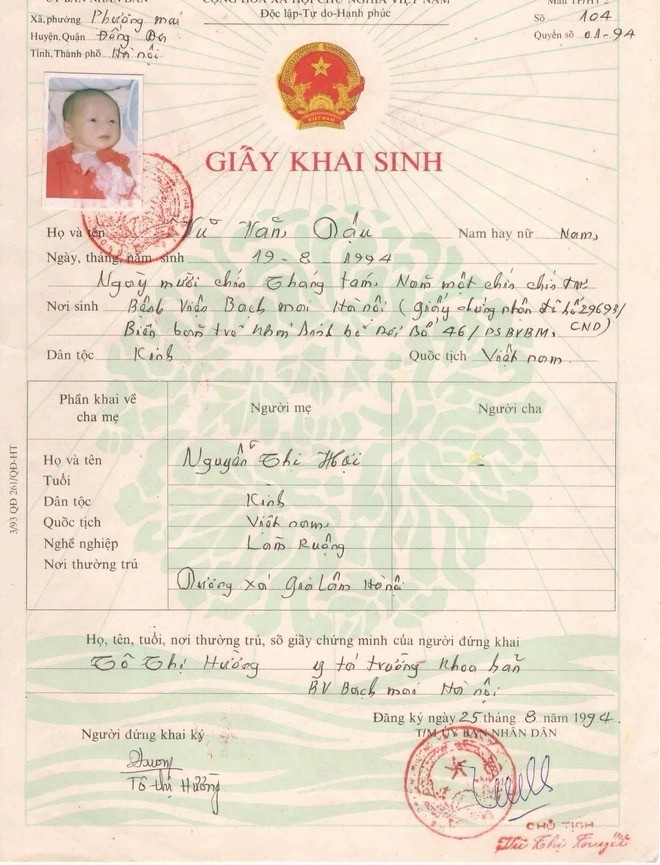 ỦY BAN NHÂN DÂN
CỘNG HÒA XÃ HỘI CHỦ NGHĨA VIỆT NAM
Mẫu TP/HT
Độc lập-Tự do-Hạnh phúc
Xã, phường Phương mai
Số 104
Huyện, Quận Đống Đa
Quyển số 01-94
Tỉnh, Thành phố Hà nội
VIỆT NAM
GIẤY KHAI SINH
Họ và tên Vũ Văn Dậu Nam hay nữ Nam
Ngày, tháng, năm sinh 19-8-1994
Ngày mười chín tháng tám, Năm một chín chín tư
Nơi sinh Bệnh Viện Bạch mai Hà nội (giấy chứng nhận
Biên bản trẻ bỏ rơi Số 46/PSBVBM,
Dân tộc Kinh Quốc tịch Việt nam
Phần khai về cha mẹ Người mẹ Người cha
Họ và tên Nguyễn Thị -
Tuổi
Dân tộc Kinh
Quốc tịch Việt nam
Nghề nghiệp Làm Ruộng
Nơi thường trú
Dương xá Gia Lâm Hà nội
3/93 QĐ 261/QĐ-HT
Họ, tên, tuổi, nơi thường trú, số giấy chứng minh của người đứng khai
Tô Thị Hường y tá trưởng khoa sản
BV Bạch mai Hà nội
Đăng ký ngày 25 tháng 8 năm 1994.
Người đứng khai ký
T/M ỦY BAN NHÂN DÂN
Tô thị Hường
CHỦ TỊCH
Vũ Thị Tuyết